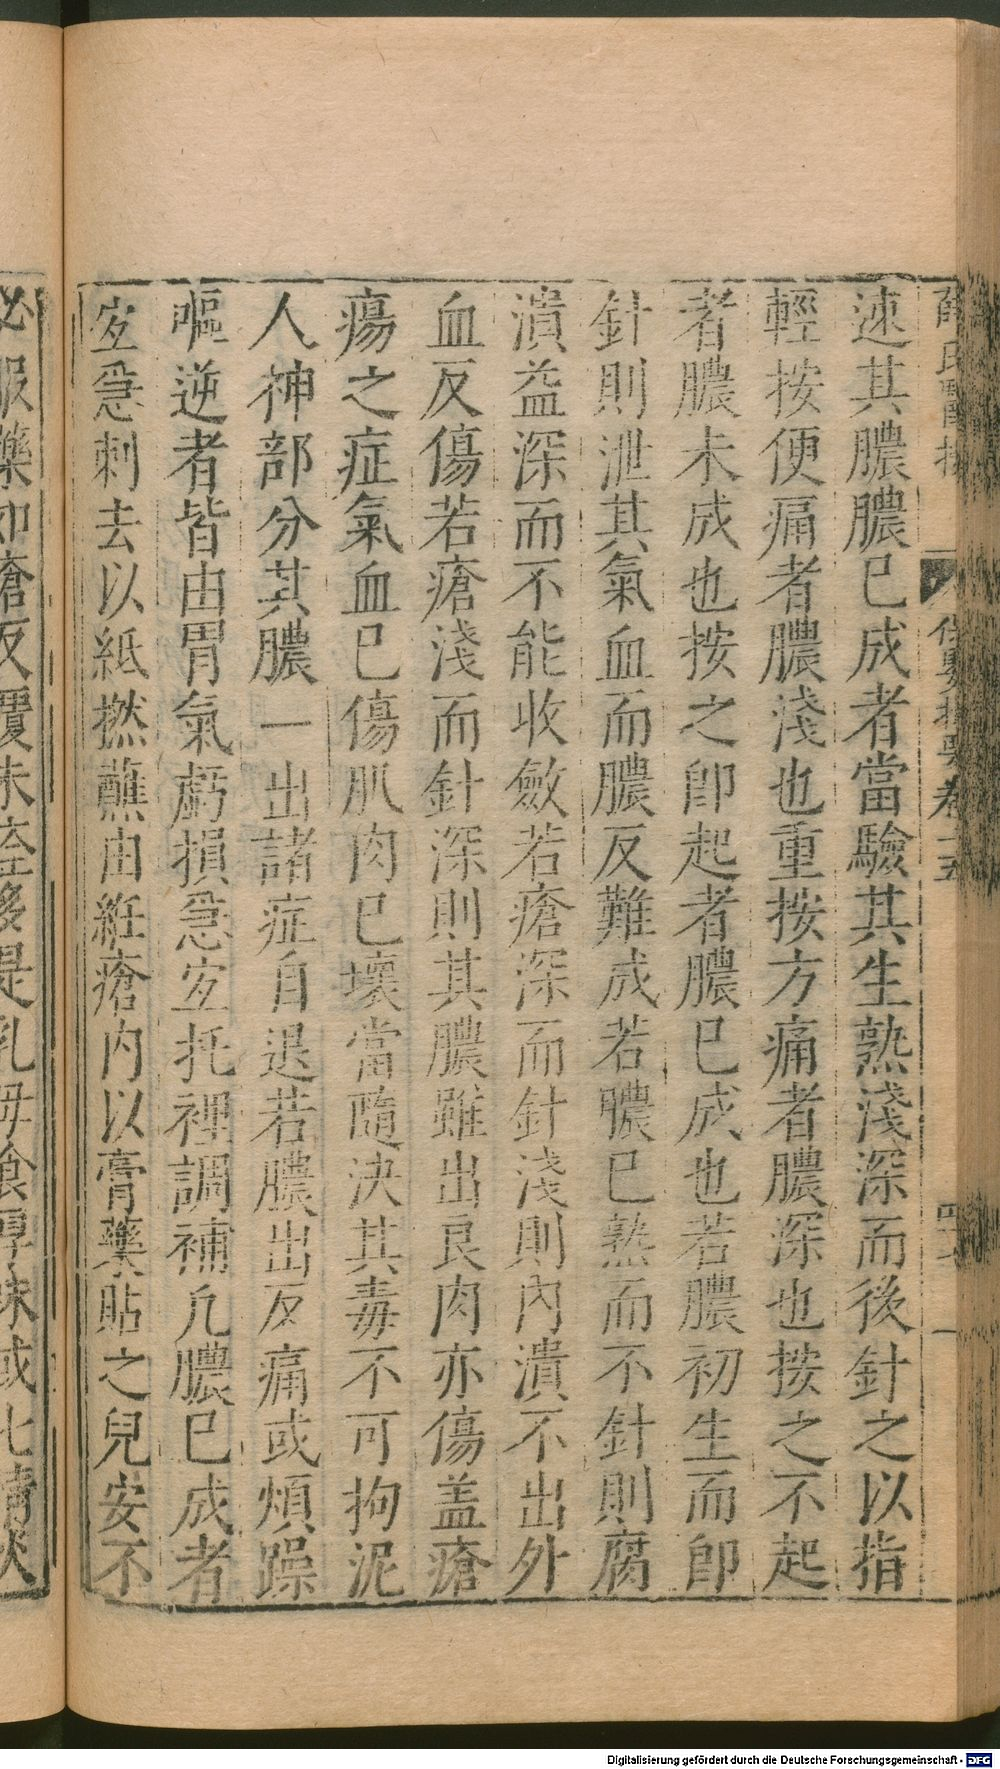 速其膿膿已成者當驗其生熟淺深而後針之以指
輕按便痛者膿淺也重按方痛者膿深也按之不起
者膿未成也按之卽起者膿已成也若膿初生而卽
針則泄其氣血而膿反難成若膿已熟而不針則腐
潰益深而不能收斂若瘡深而針淺則內潰不出外
血反傷若瘡淺而針深則其膿雖出良肉亦傷盖瘡
瘍之症氣血已傷肌肉已壞當隨决其毒不可拘泥
人神部分其膿一出諸症自退若膿出反痛或煩躁
嘔逆者皆由胃氣虧損急宜托裡調補凢膿已成者
宜急刺去以紙撚蘸由絍瘡內以膏藥貼之兒安不
必服藥如瘡反覆未痊多是乳母食厚味或七情
Digitalisierung gefördert durch die Deutsche Forschungsgemeinschaft - DFG